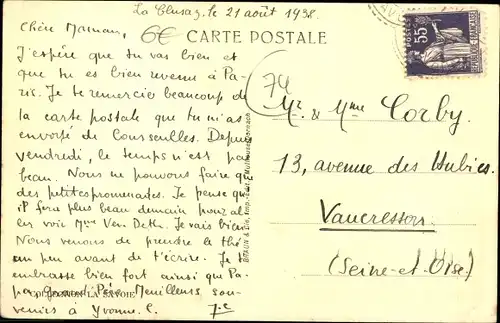 La Clusaz, le 21 août 1938.
Chère Maman,
6€
CARTE POSTALE
J'espère que tu vas bien et
que tu es bien revenue à Pa-
ris. Je te remercie beaucoup de
la carte postale que tu m'as
envoyé de Courseulles. Depuis
vendredi, le temps n'est pas
beau. Nous ne pouvons faire que
des petites promenades. Je pense qu'
il fera plus beau demain pour al-
ler voir Mme Van Deth. Je vais bien.
Nous venons de prendre le thé
un peu avant de t'écrire. Je t'
embrasse bien fort ainsi que Pa-
pa, Grand Père. Meilleurs sou-
venirs à Yvonne.
COLLECTION LA SAVOIE
BRAUN & Cie, Imp.-Edit.
74
POSTES
55
RÉPUBLIQUE FRANÇAISE
Mr. & Mme Corby
13, avenue des Hubies.
Vaucresson
(Seine-et-Oise)